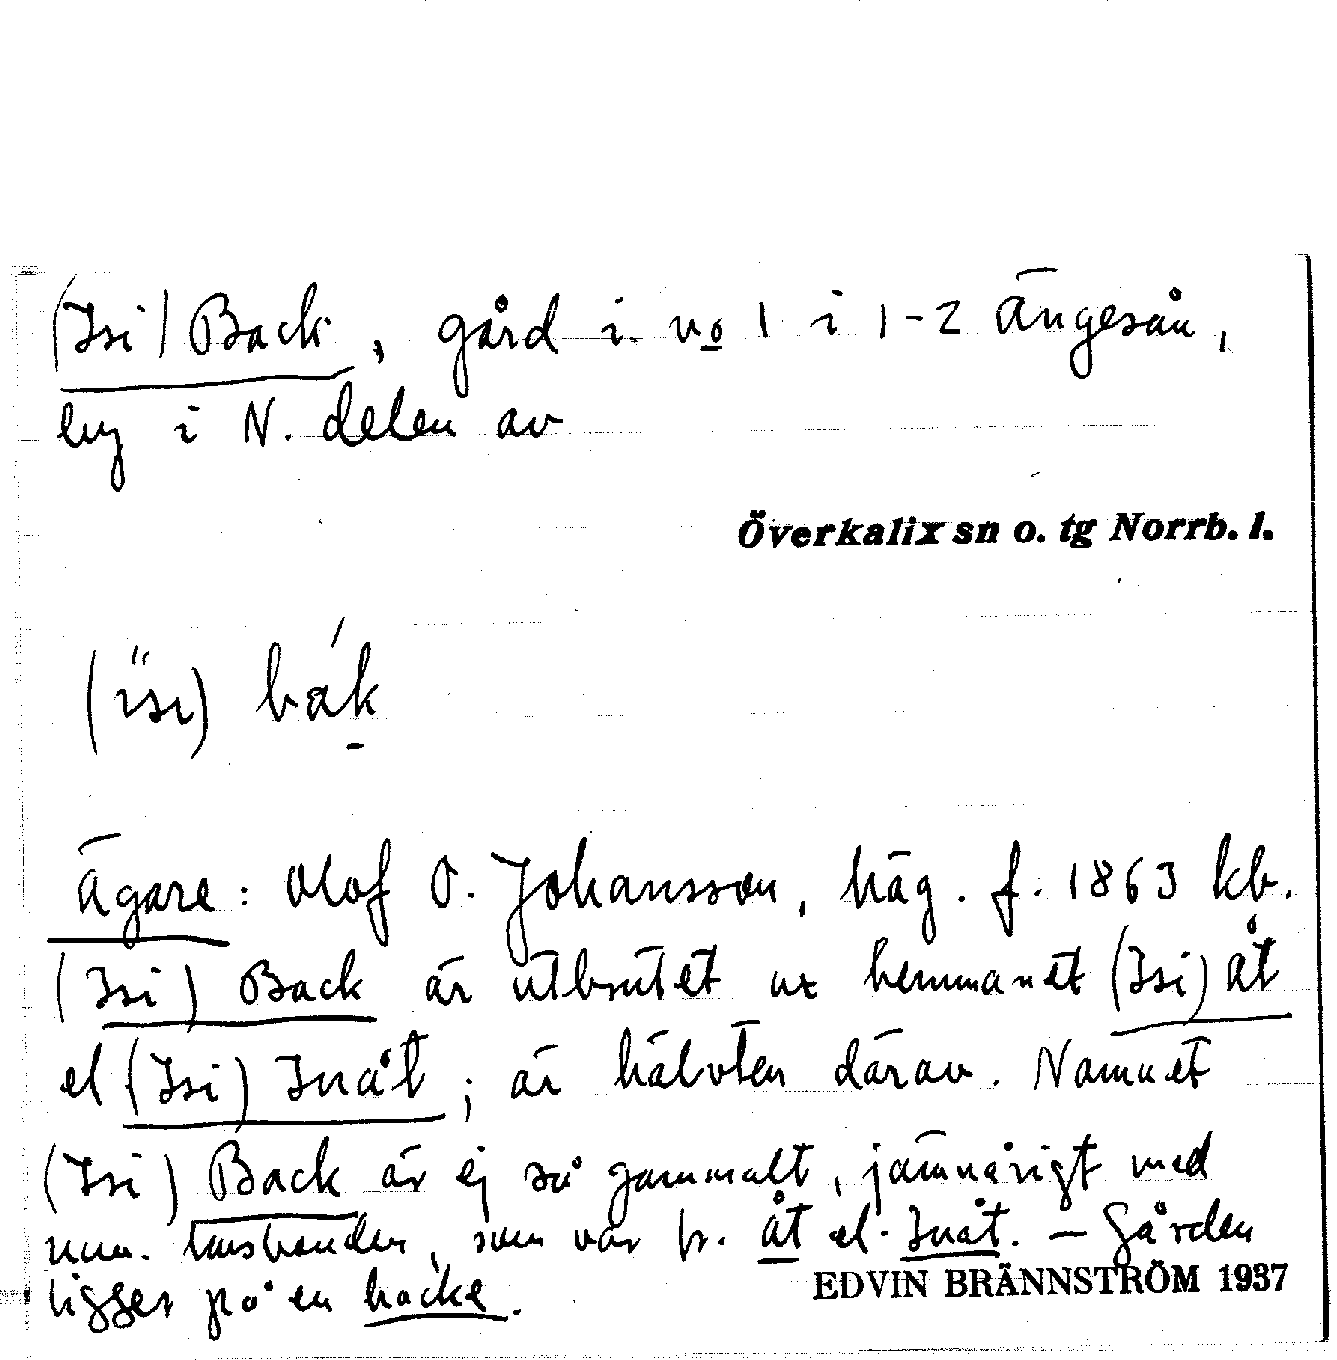 (Isi) Back, gård i no 1 i 1-2 Ängesån,
by i N. delen av
Överkalix sn o. tg Norrb. l.
(ïsi) bák
Ägare: Olof O. Johansson, häg. f. 1863 kb.
(Isi) Back är utbrutet ur hemmanet (Isi) åt
el (Isi) Inåt; är hälvten därav. Namnet
(Isi) Back är ej så gammalt, jämnårigt med
nuv. husbonden, som var fr. åt el. Inåt. – Gården
ligger på en backe.
EDVIN BRÄNNSTRÖM 1937